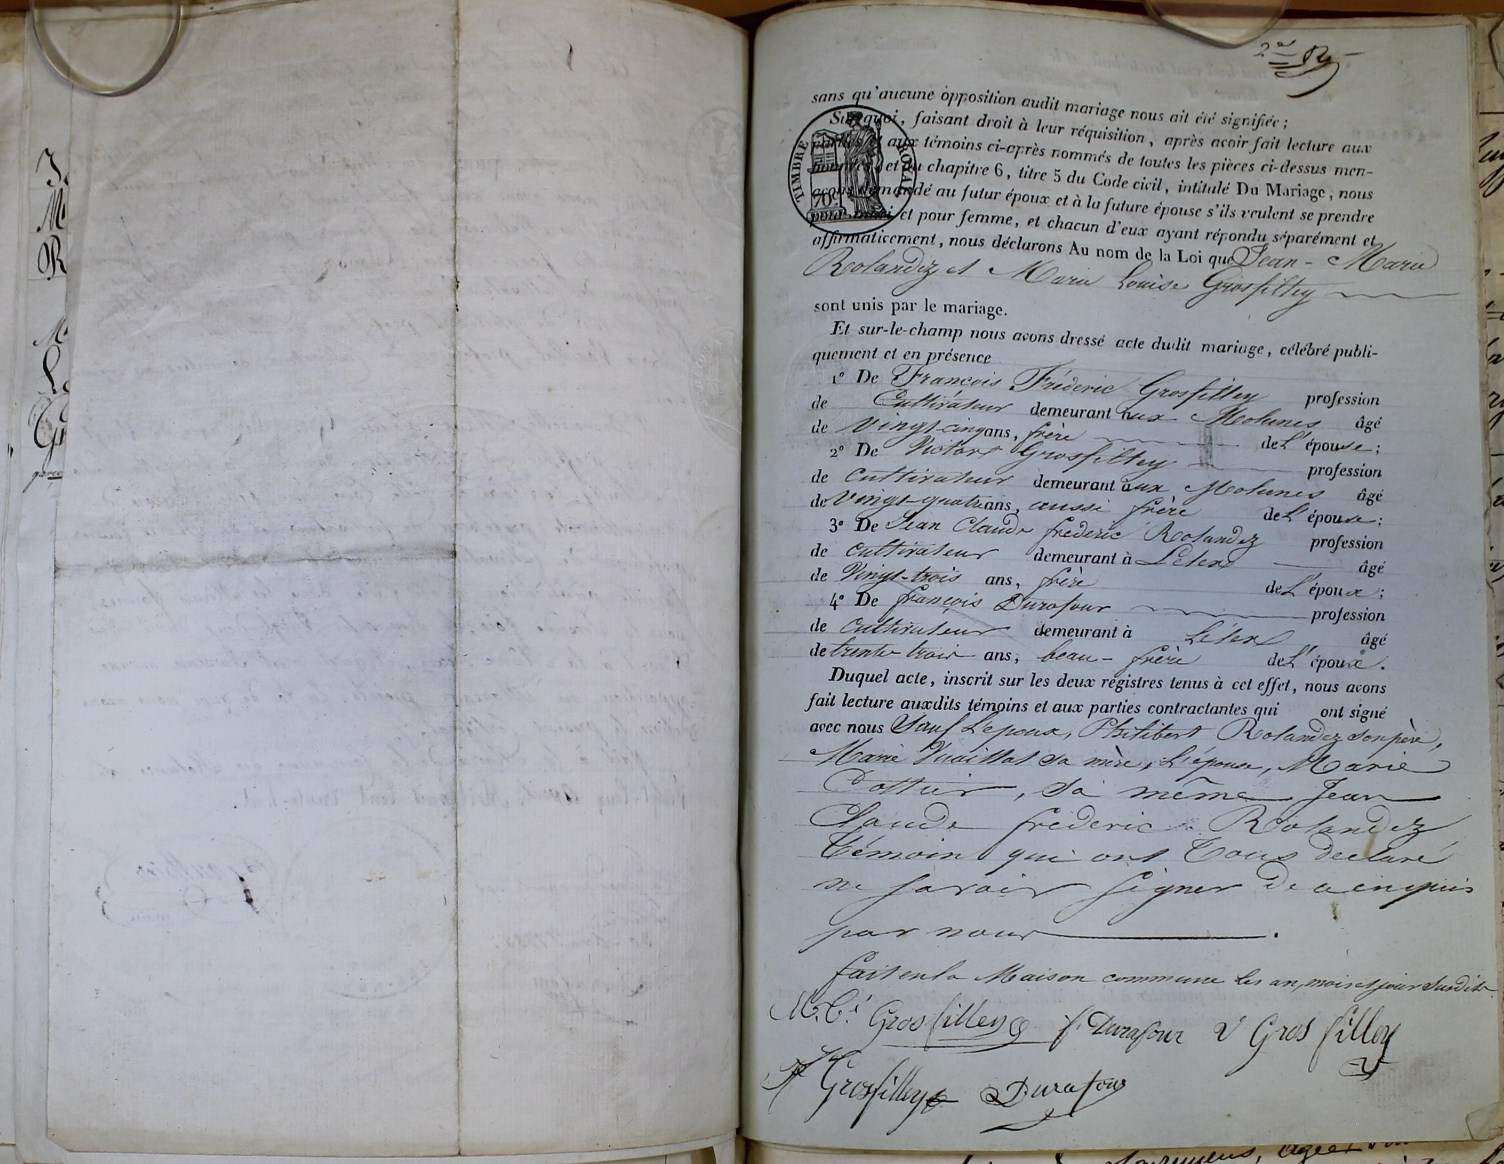 2e
sans qu'aucune opposition audit mariage nous ait été signifiée;
Sur quoi, faisant droit à leur réquisition, après avoir fait lecture aux
parties et aux témoins ci-après nommés de toutes les pièces ci-dessus men-
et du chapitre 6, titre 5 du Code civil, intitulé Du Mariage, nous
avons demandé au futur époux et à la future épouse s'ils veulent se prendre
pour mari et pour femme, et chacun d'eux ayant répondu séparément et
affirmativement, nous déclarons Au nom de la Loi que Jean-Marie
Rolandez et Marie Louise Grosfilley
TIMBRE ROYAL
70c
sont unis par le mariage.
Et sur-le-champ nous avons dressé acte dudit mariage, célébré publi-
quement et en présence
1° De François Fréderic Grosfilley profession
de Cultivateur demeurant aux Molunes âgé
de vingt-cinq ans, frère de L'épouse;
2° De Victor Grosfilley profession
de cultivateur demeurant aux Molunes âgé
de vingt-quatre ans, aussi frère de L'épouse;
3° De Jean Claude frederic Rolandez profession
de cultivateur demeurant à Lélex âgé
de Vingt-trois ans, frère de L'époux;
4° De françois Durafour profession
de cultivateur demeurant à Lélex âgé
de trente trois ans, beau-frère de L'époux.
Duquel acte, inscrit sur les deux registres tenus à cet effet, nous avons
fait lecture auxdits témoins et aux parties contractantes qui ont signé
avec nous Sauf L'epoux, Philibert Rolandez son père,
Marie Vuaillat sa mère, L'épouse, Marie
Cottier, sa même Jean
Claude frederic Rolandez
Témoin qui ont Tous declaré
ne savoir signer de ce enquis
par nous.
fait en la Maison commune les an, mois et jour susdits
M. C. Grosfilley f. Durafour V Gros filley
Grosfilley Durafour